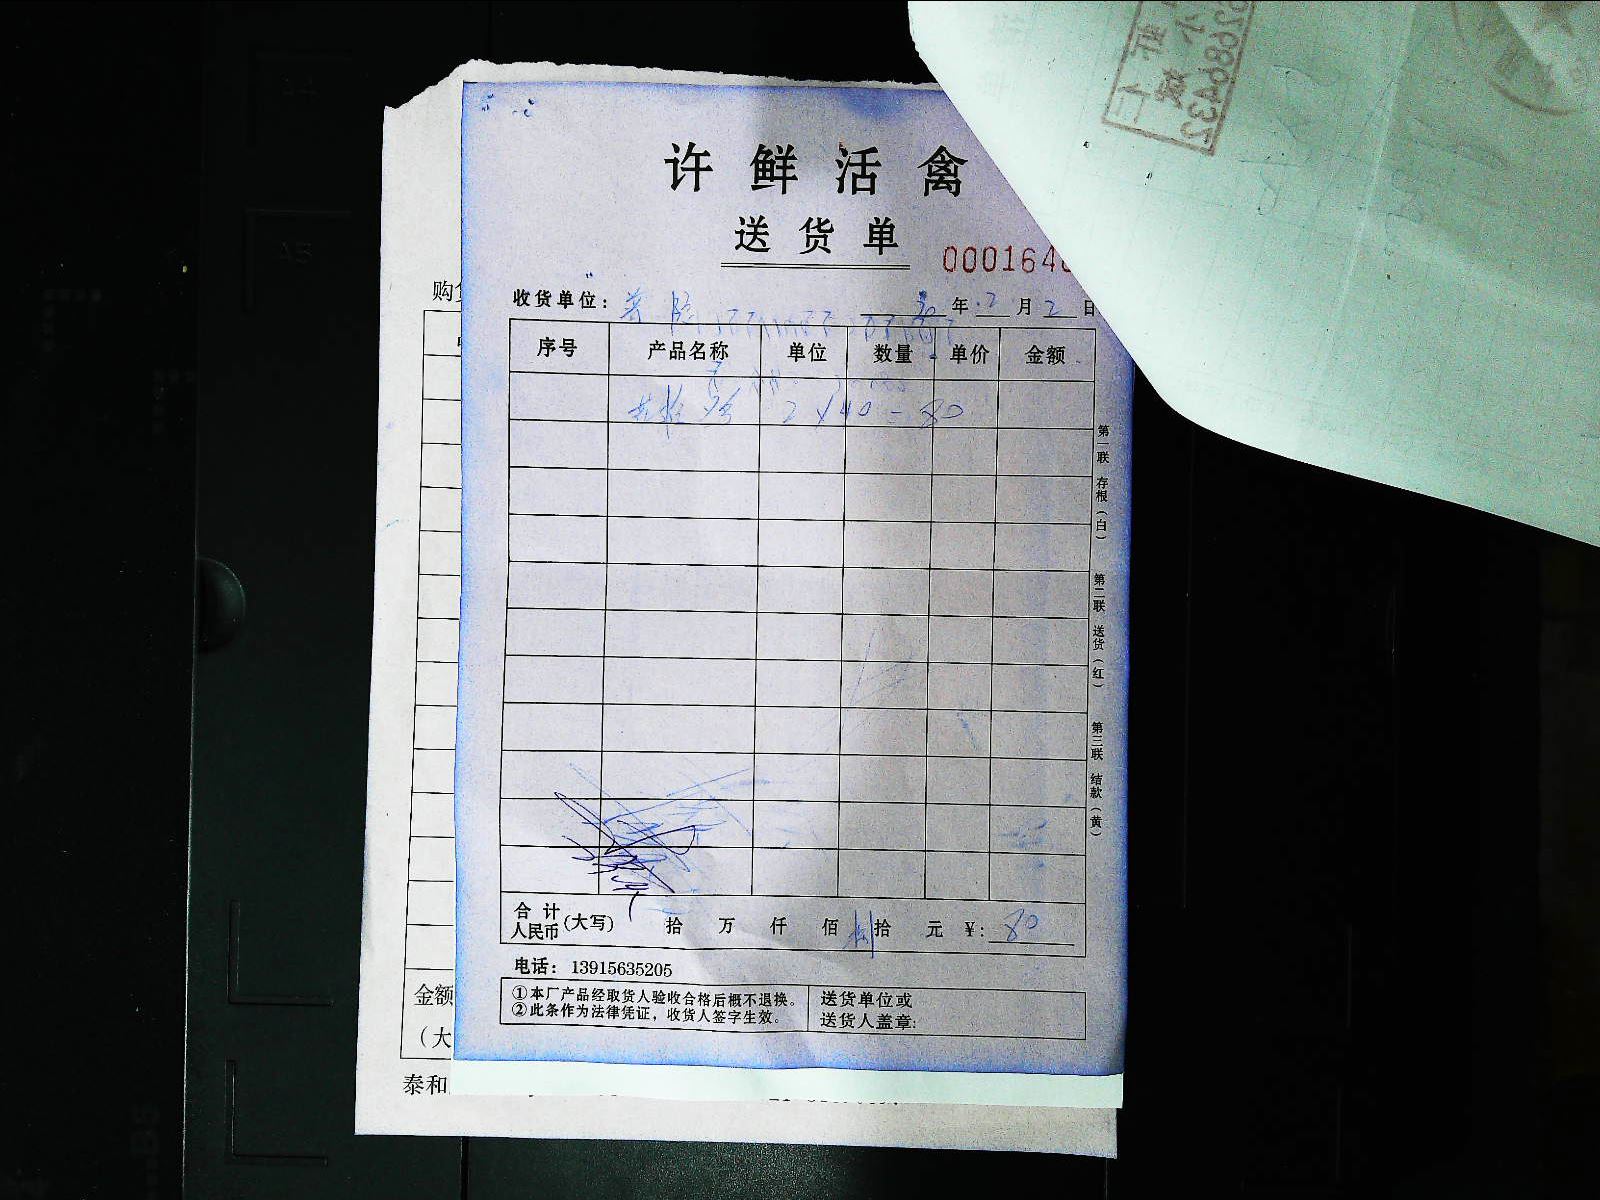 许鲜活禽
送货单
000164
收货单位： 年 2 月 2 日
序号 产品名称 单位 数量 单价 金额
2 × 40 = 80
第一联 存根（白）
第二联 送货（红）
第三联 结款（黄）
合计人民币（大写） 拾 万 仟 佰 拾 元 ¥: 80
电话： 13915635205
①本厂产品经取货人验收合格后概不退换。
②此条作为法律凭证，收货人签字生效。
送货单位或
送货人盖章:
购
金额
（大
泰和